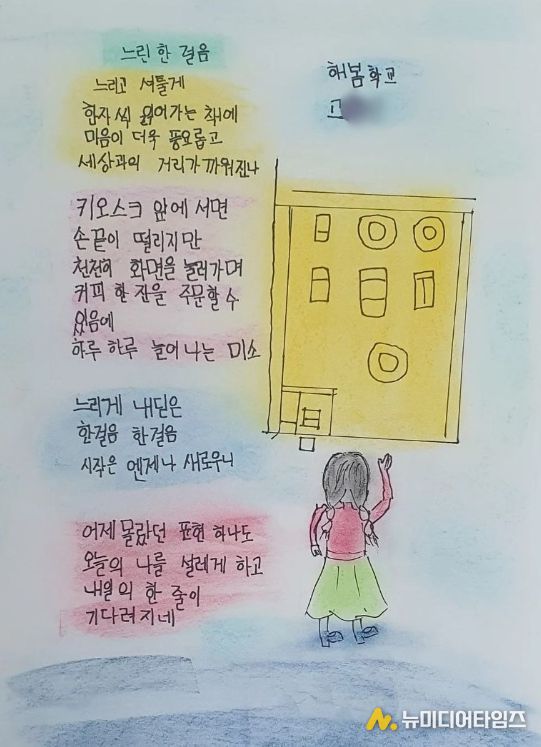 느린 한 걸음
해봄학교
고
느리고 서툴게
한자씩 읽어가는 책에
마음이 더욱 풍요롭고
세상과의 거리가 까워진나
키오스크 앞에 서면
손끝이 떨리지만
천천히 화면을 눌러가며
커피 한 잔을 주문할 수
있음에
하루 하루 늘어 나는 미소
느리게 내딛은
한걸음 한걸음
시작은 언제나 새로우니
어제 몰랐던 표현 하나도
오늘의 나를 설레게 하고
내일의 한 줄이
기다려지네
뉴미디어타임즈